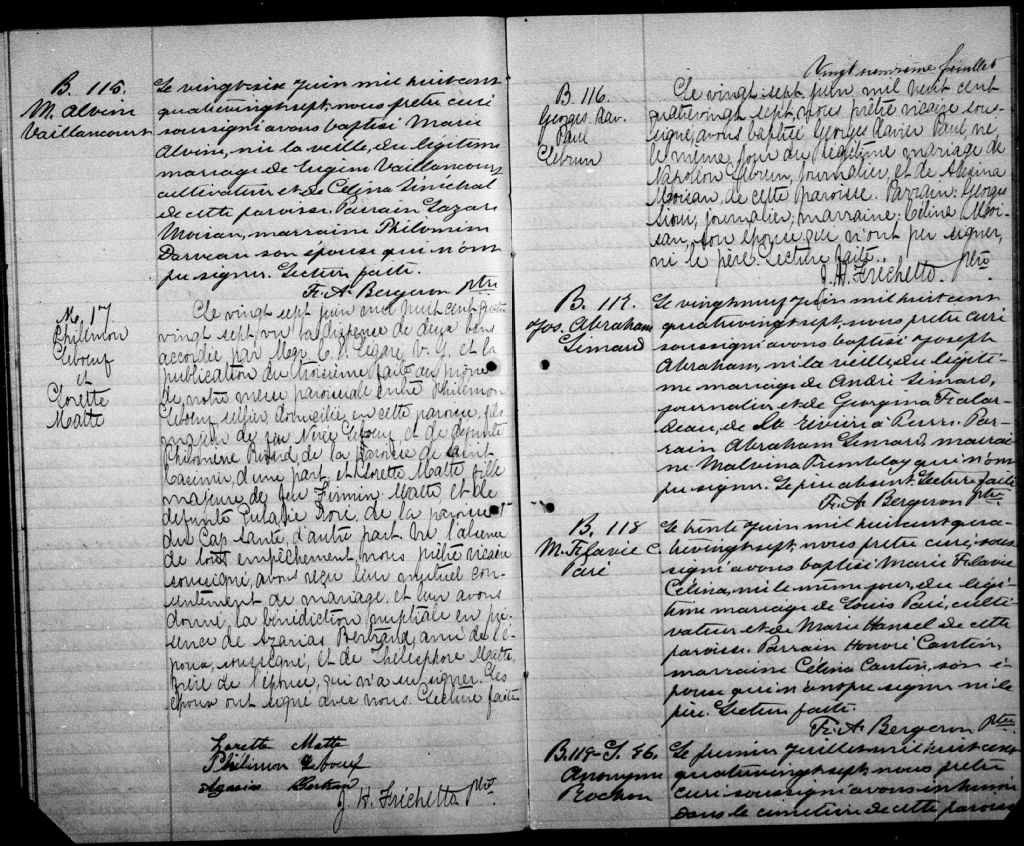 B. 115.
M. Alvini
Vaillancourt
Le vingt-six Juin mil huit cent
quatrevingt sept, nous pretre curé
soussigné avons baptisé Marie
Alvine, née la veille, du légitime
mariage de Régime Vaillancourt
cultivateur et de Célina Sénéchal
de cette paroisse. Parrain Lazare
Moisan, marraine Philomène
Darveau son épouse qui n'ont
pu signer. Lecture faite.
Fr. A. Bergeron ptre
M. 17
Philémon
Leboeuf
et
Lorette
Matte
Le vingt sept juin mil huit cent quatre
vingt sept, vu la dispense de deux bans
accordée par Mgr C. E. Légaré V. G. et la
publication du troisième faite au prône
de notre messe paroissiale entre Philémon
Leboeuf sellier domicilié en cette paroisse, fils
majeur de feu Leboeuf et de défunte
Philomène Rivard de la paroisse de Saint
Casimir, d'une part, et Lorette Matte fille
majeure de feu Firmin Matte et de
défunte Eulalie Doré de la paroisse
du Cap Santé, d'autre part. Vu l'absence
de tout empêchement, nous prêtre vicaire
soussigné, avons reçu leur mutuel con-
sentement de mariage, et leur avons
donné la bénédiction nuptiale en pré-
sence de Azarias Bertrand, ami de l'é-
poux, soussigné, et de Thélesphore Matte,
frère de l'épouse, qui n'a su signer. Les
époux ont signé avec nous. Lecture faite
Lorette Matte
Philémon Leboeuf
J. H. Fréchette Ptre
Vingt neuvième feuillet
B. 116.
Georges. Xav.
Paul
Lebrun
Le vingt sept juin, mil huit cent
quatrevingt sept, nous prêtre vicaire sous-
signé, avons baptisé Georges Xavier Paul, né
le même jour du légitime mariage de
Napoléon Lebrun, journalier, et de
Moisan, de cette paroisse. Parrain: Georges
Sioui, journalier; marraine: Céline Moi-
san, son épouse qui n'ont pu signer,
ni le père. Lecture faite.
J. H. Fréchette. Ptre
B. 117.
Jos. Abraham
Simard
Le vingt neuf Juin mil huit cent
quatrevingt sept, nous pretre curé
soussigné avons baptisé Joseph
Abraham, né la veille, du légiti-
me mariage de André Simard,
journalier et de Georgina Falar-
deau, de St. Par-
rain Abraham Simard, marrai-
ne Malvina Tremblay qui n'ont
pu signer. Le père absent. Lecture faite
Fr. A. Bergeron ptre
B. 118
M. Flavie C.
Paré
Le trente Juin mil huit cent qua-
trevingt sept, nous pretre curé, sous-
signé avons baptisé Marie Flavie
Célina, née le même jour, du légi-
time mariage de Louis Paré, culti-
vateur et de Marie Hamel de cette
paroisse. Parrain Honoré Cantin,
marraine Célina Cantin, son é-
pouse qui n'ont pu signer ni le
père. Lecture faite.
Fr. A. Bergeron ptre
B. 119 - S. 46.
Anonyme
Rochon
Le premier Juillet mil huit cent
quatrevingt sept, nous pretre
curé soussigné avons inhumé
dans le cimetière de cette paroisse